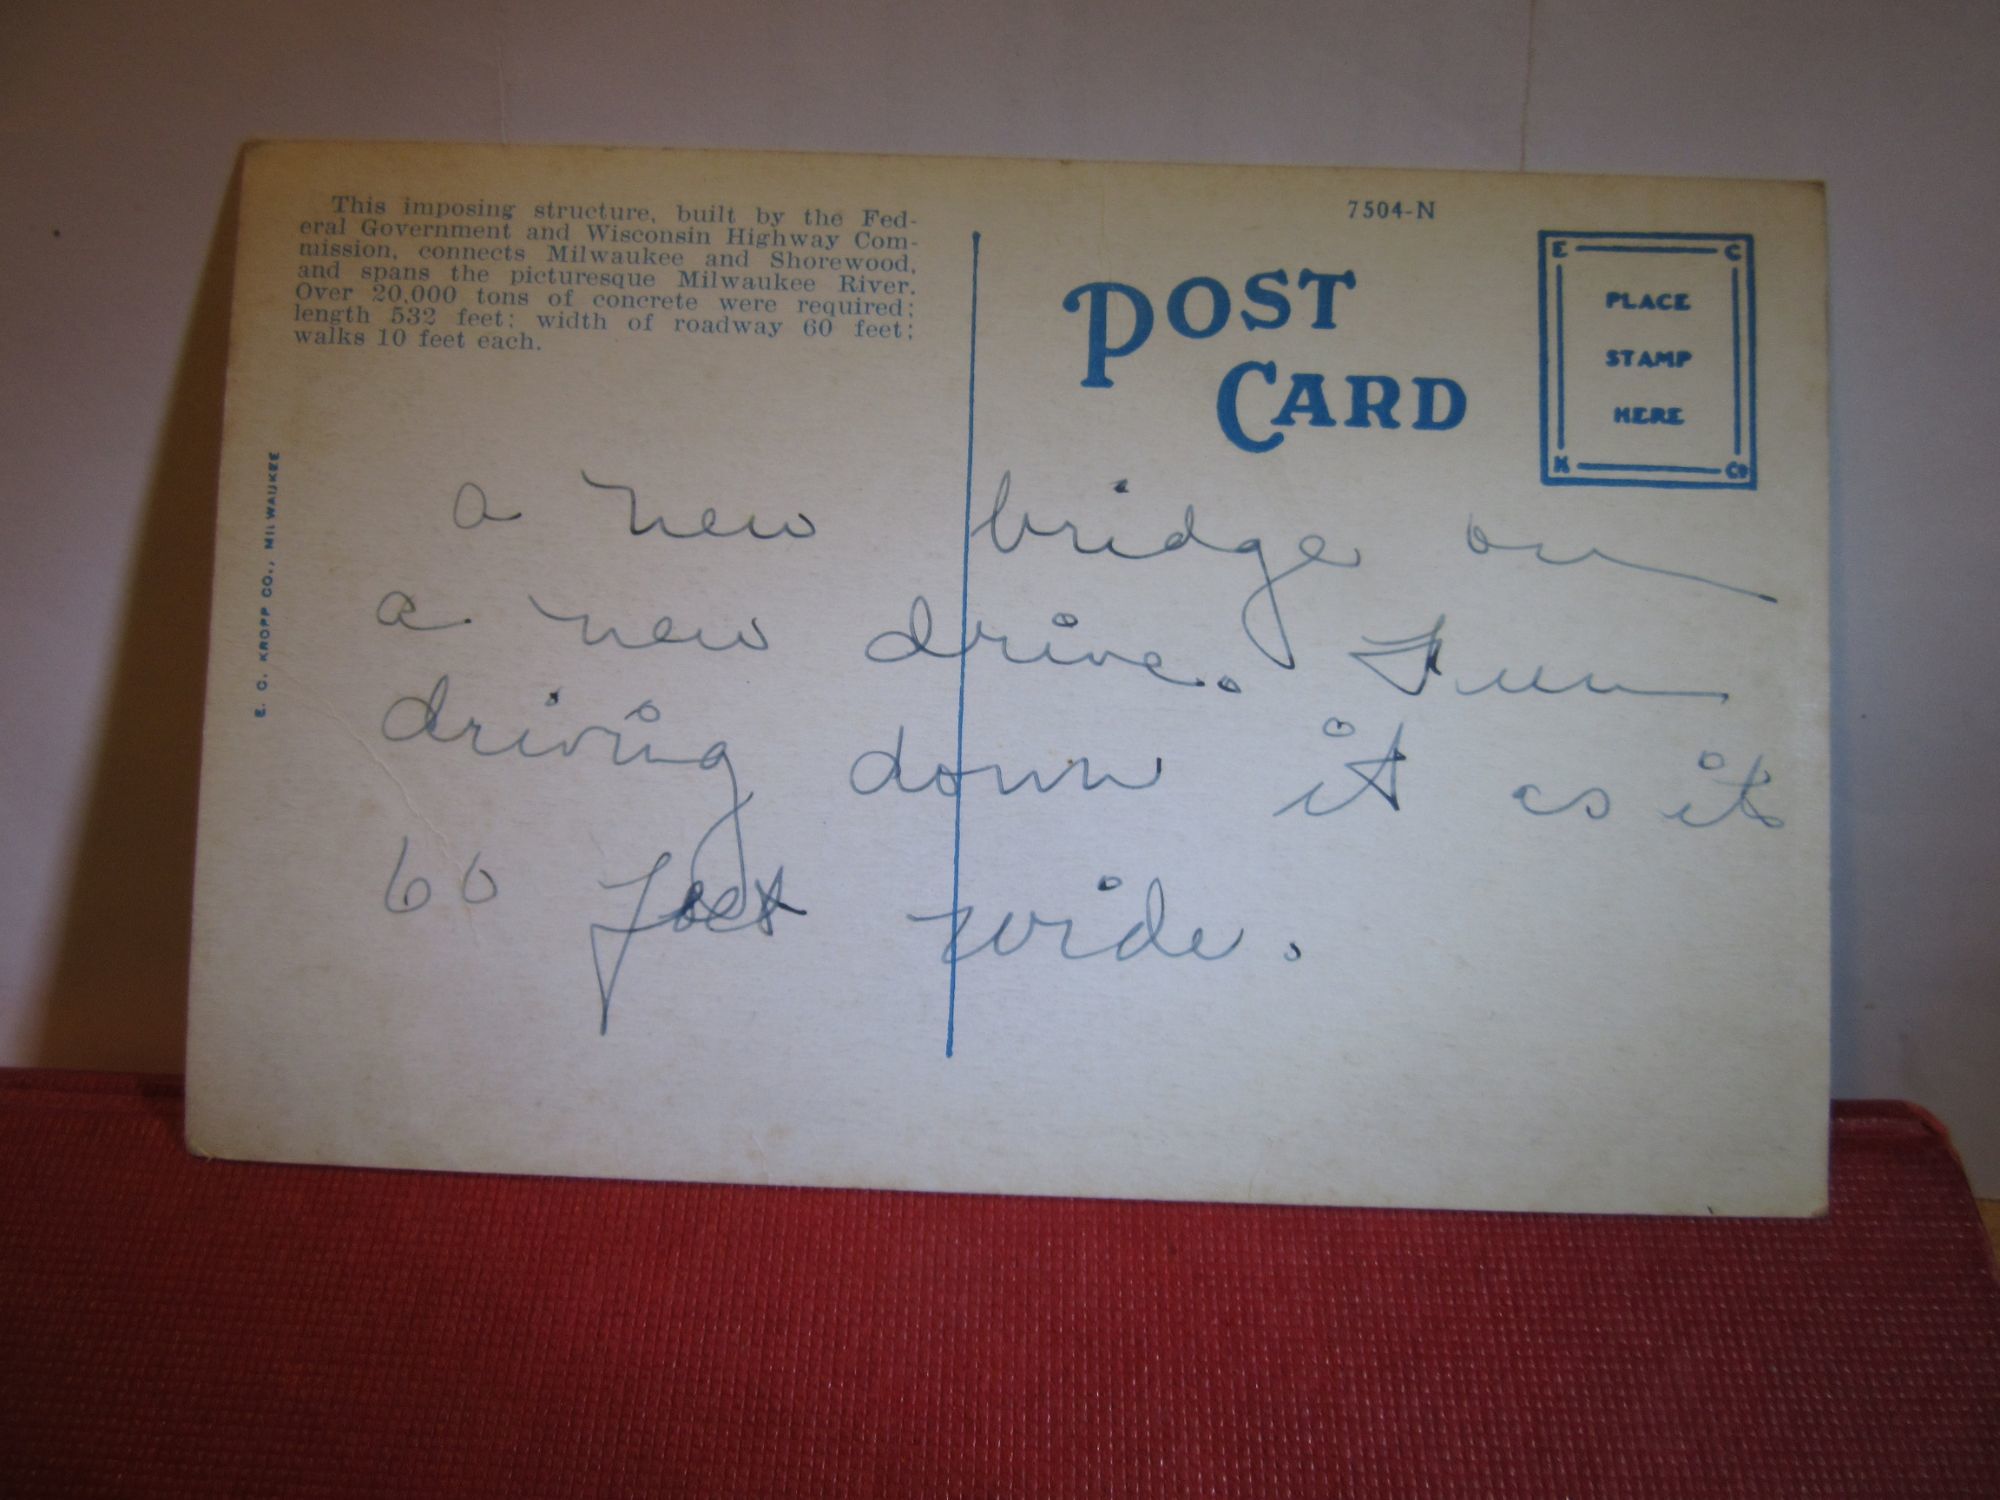 This imposing structure, built by the Fed-
eral Government and Wisconsin Highway Com-
mission, connects Milwaukee and Shorewood,
and spans the picturesque Milwaukee River.
Over 20,000 tons of concrete were required;
length 532 feet; width of roadway 60 feet;
walks 10 feet each.
E. C. KROPP CO., MILWAUKEE
7504-N
POST
CARD
E C
PLACE
STAMP
HERE
K Co
a new bridge on
a new drive. Fun
driving down it as its
60 feet wide.